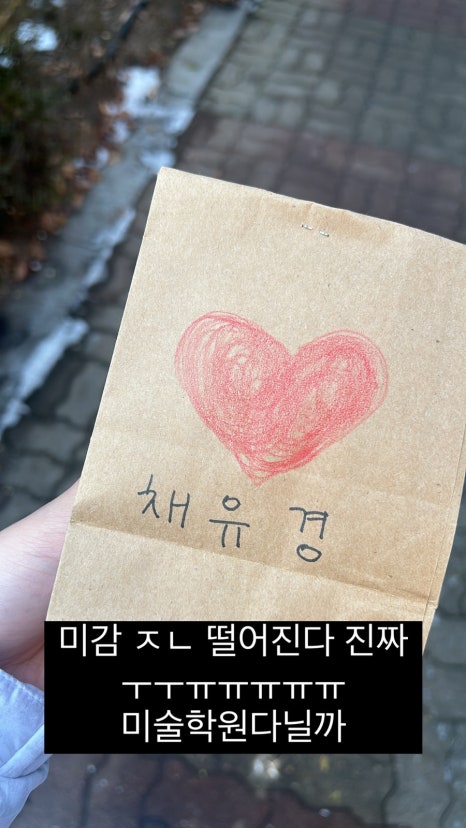 채유경
미감 ㅈㄴ 떨어진다 진짜
ㅜㅜㅠㅠㅠㅠㅠ
미술학원다닐까